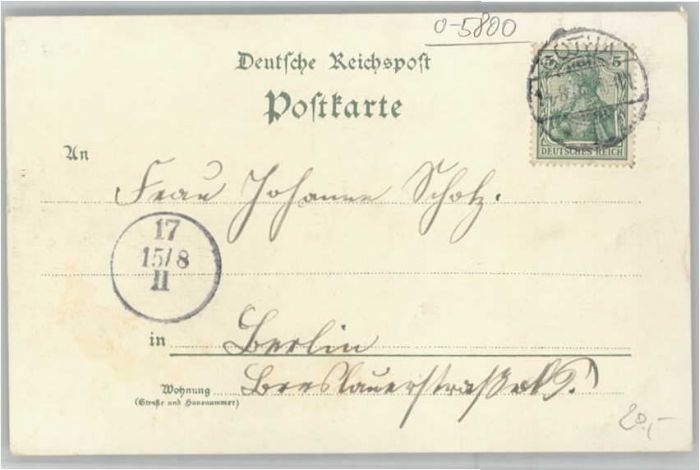 0-5800
Deutsche Reichspost
Postkarte
GOTHA
5 5
DEUTSCHES REICH
An
Frau Johanne Scholz.
17
15/8
II
in Berlin
Wohnung Breslauerstraße
(Straße und Hausnummer)
20,-